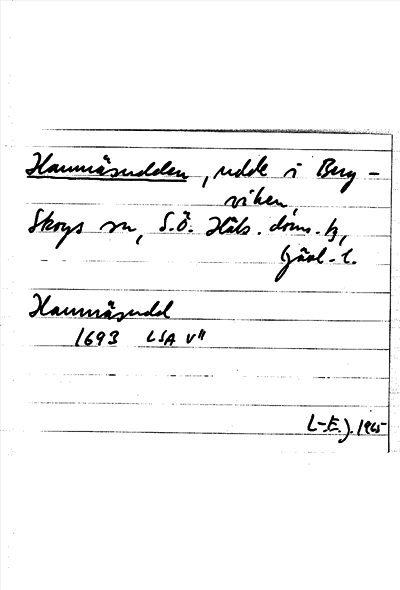 Hamnäsudden, udde i Berg-
viken,
Skogs sn, S.Ö. Häls. doms. h,
Gävl. l.
Hamnäsudd
1693 LSA V"
L-E. J. 1965